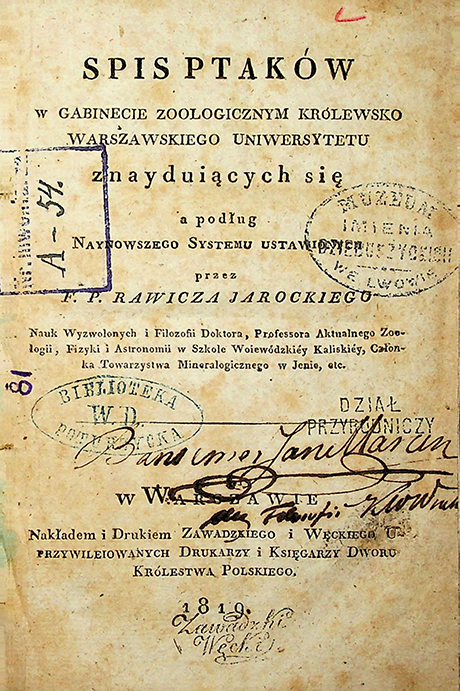 SPIS PTAKÓW
W GABINECIE ZOOLOGICZNYM KRÓLEWSKO
WARSZAWSKIEGO UNIWERSYTETU
znayduiących się
a podług
NAYNOWSZEGO SYSTEMU USTAWIONYCH
przez
F. P. RAWICZA JAROCKIEGO
Nauk Wyzwolonych i Filozofii Doktora, Professora Aktualnego Zoo-
logii, Fizyki i Astronomii w Szkole Woiewódzkiéy Kaliskiéy, Człon-
ka Towarzystwa Mineralogicznego w Jenie, etc.
A-54
MUZEUM
IMIENIA
DZIEDUSZYCKICH
WE LWOWIE
18
BIBLIOTEKA
W. D.
POTURZYCKA
DZIAŁ
PRZYRODNICZY
Jan Marcin
W WARSZAWIE
Filozofii
Nakładem i Drukiem ZAWADZKIEGO i WĘCKIEGO U-
PRZYWILEIOWANYCH DRUKARZY i KSIĘGARZY DWORU
KRÓLESTWA POLSKIEGO.
1819.
Zawadzki
Węcki